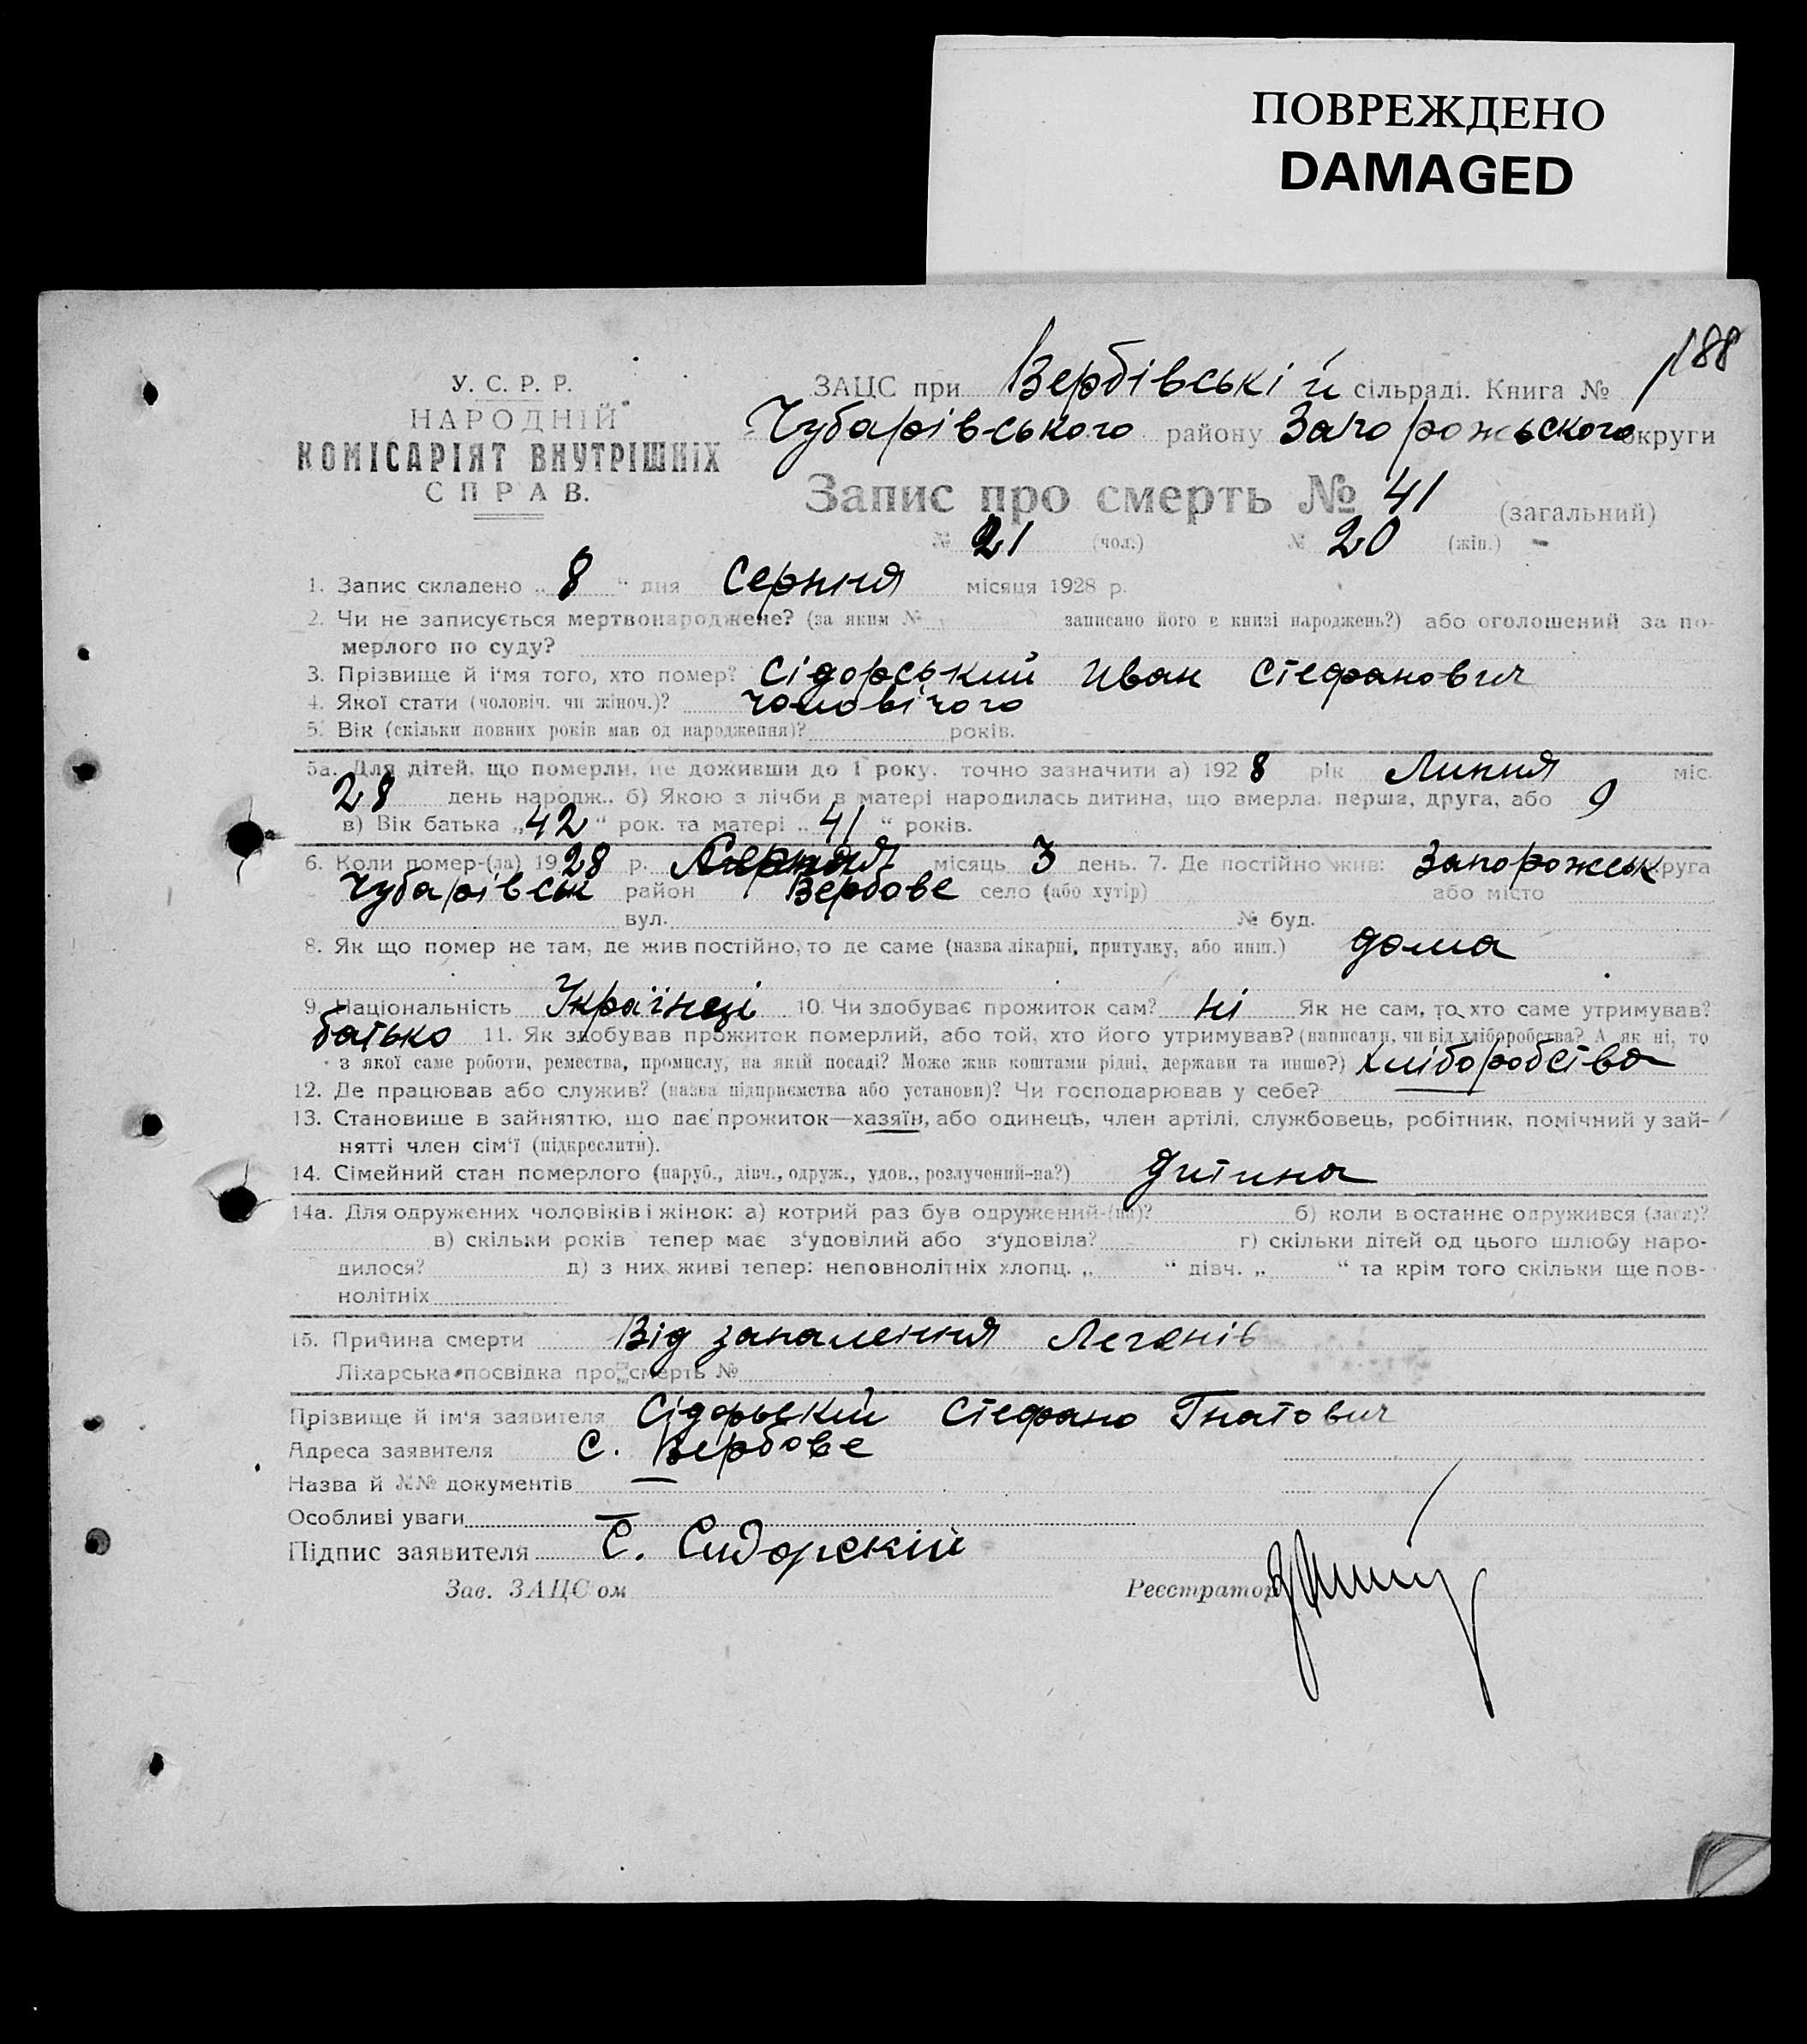 ПОВРЕЖДЕНО
DAMAGED
188
У. С. Р. Р.
НАРОДНІЙ
КОМІСАРІЯТ ВНУТРІШНІХ
СПРАВ.
ЗАЦС при Вербівській сільраді. Книга №
Чубарівського району Запорожського округи
Запис про смерть № 41 (загальний)
№ 21 (чол.) № 20 (жін.)
1. Запис складено „ 8 “ дня Серпня місяця 1928 р.
2. Чи не записується мертвонароджене? (за яким № записано його в книзі народжень?) або оголошений за по-
мерлого по суду?
3. Прізвище й і'мя того, хто помер? Сідорський Иван Стефанович
4. Якої стати (чоловіч. чи жіноч.)? чоловічого
5. Вік (скільки повних років мав од народження)? років.
5а. Для дітей, що померли, не доживши до 1 року, точно зазначити а) 192 8 рік Липня міс.
28 день народж. б) Якою з лічби в матері народилась дитина, що вмерла. перша, друга, або 9
в) Вік батька „ 42 “ рок. та матері „ 41 “ років.
6. Коли помер-(ла) 19 28 р. Серпня місяць 3 день. 7. Де постійно жив: Запорожськ округа
Чубарівськ район Вербове село (або хутір) або місто
вул. № буд.
8. Як що помер не там, де жив постійно, то де саме (назва лікарні, притулку, або инш.) дома
9. Національність Українці 10. Чи здобуває прожиток сам? ні Як не сам, то хто саме утримував?
батько 11. Як здобував прожиток померлий, або той, хто його утримував? (написати, чи від хліборобства? А як ні, то
з якої саме роботи, ремества, промислу, на якій посаді? Може жив коштами рідні, держави та инше?) хліборобство
12. Де працював або служив? (назва підприємства або установи)? Чи господарював у себе?
13. Становище в зайняттю, що дає прожиток—хазяїн, або одинець, член артілі, службовець, робітник, помічний у зай-
нятті член сім'ї (підкреслити).
14. Сімейний стан померлого (паруб., дівч., одруж., удов., розлучений-на?) дитина
14а. Для одружених чоловіків і жінок: а) котрий раз був одружений-(на)? б) коли востаннє одружився (лася)?
в) скільки років тепер має з'удовілий або з'удовіла? г) скільки дітей од цього шлюбу наро-
дилося? д) з них живі тепер: неповнолітніх хлопц. „ “ дівч. „ “ та крім того скільки ще пов-
нолітніх
15. Причина смерти Від запалення Легенів
Лікарська посвідка про смерть №
Прізвище й ім'я заявителя Сідорьский Стефано Гнатович
Адреса заявителя С. Вербове
Назва й №№ документів —
Особливі уваги —
Підпис заявителя С. Сидорскій
Зав. ЗАЦС'ом Реєстратор